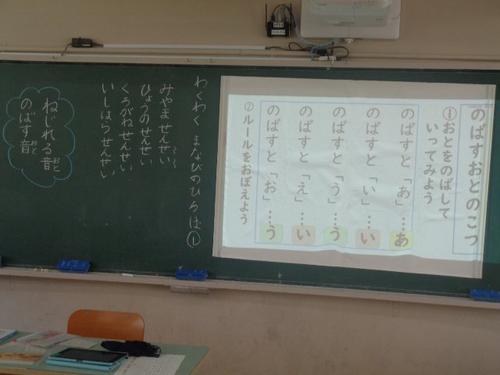 のばすおとのこつ
①おとをのばして
いってみよう
のばすと「あ」…あ
のばすと「い」…い
のばすと「う」…う
のばすと「え」…い
のばすと「お」…う
②ルールをおぼえよう
わくわく まなびのひろば①
みやませんせい
ひょうどうせんせい
くろがねせんせい
いしはらせんせい
ねじれる音
のばす音